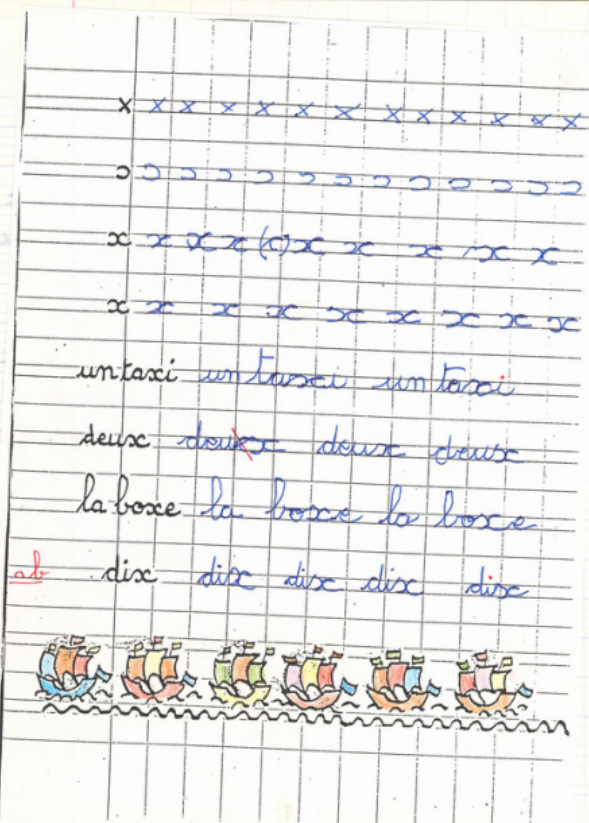 x x x x x x x x x x x x x
ɔ ɔ ɔ ɔ ɔ ɔ ɔ ɔ ɔ ɔ ɔ ɔ ɔ
x x x x (x) x x x x x
x x x x x x x x x
un taxi un taxi un taxi
deux deux deux deux
la boxe la boxe la boxe
ab dix dix dix dix dix